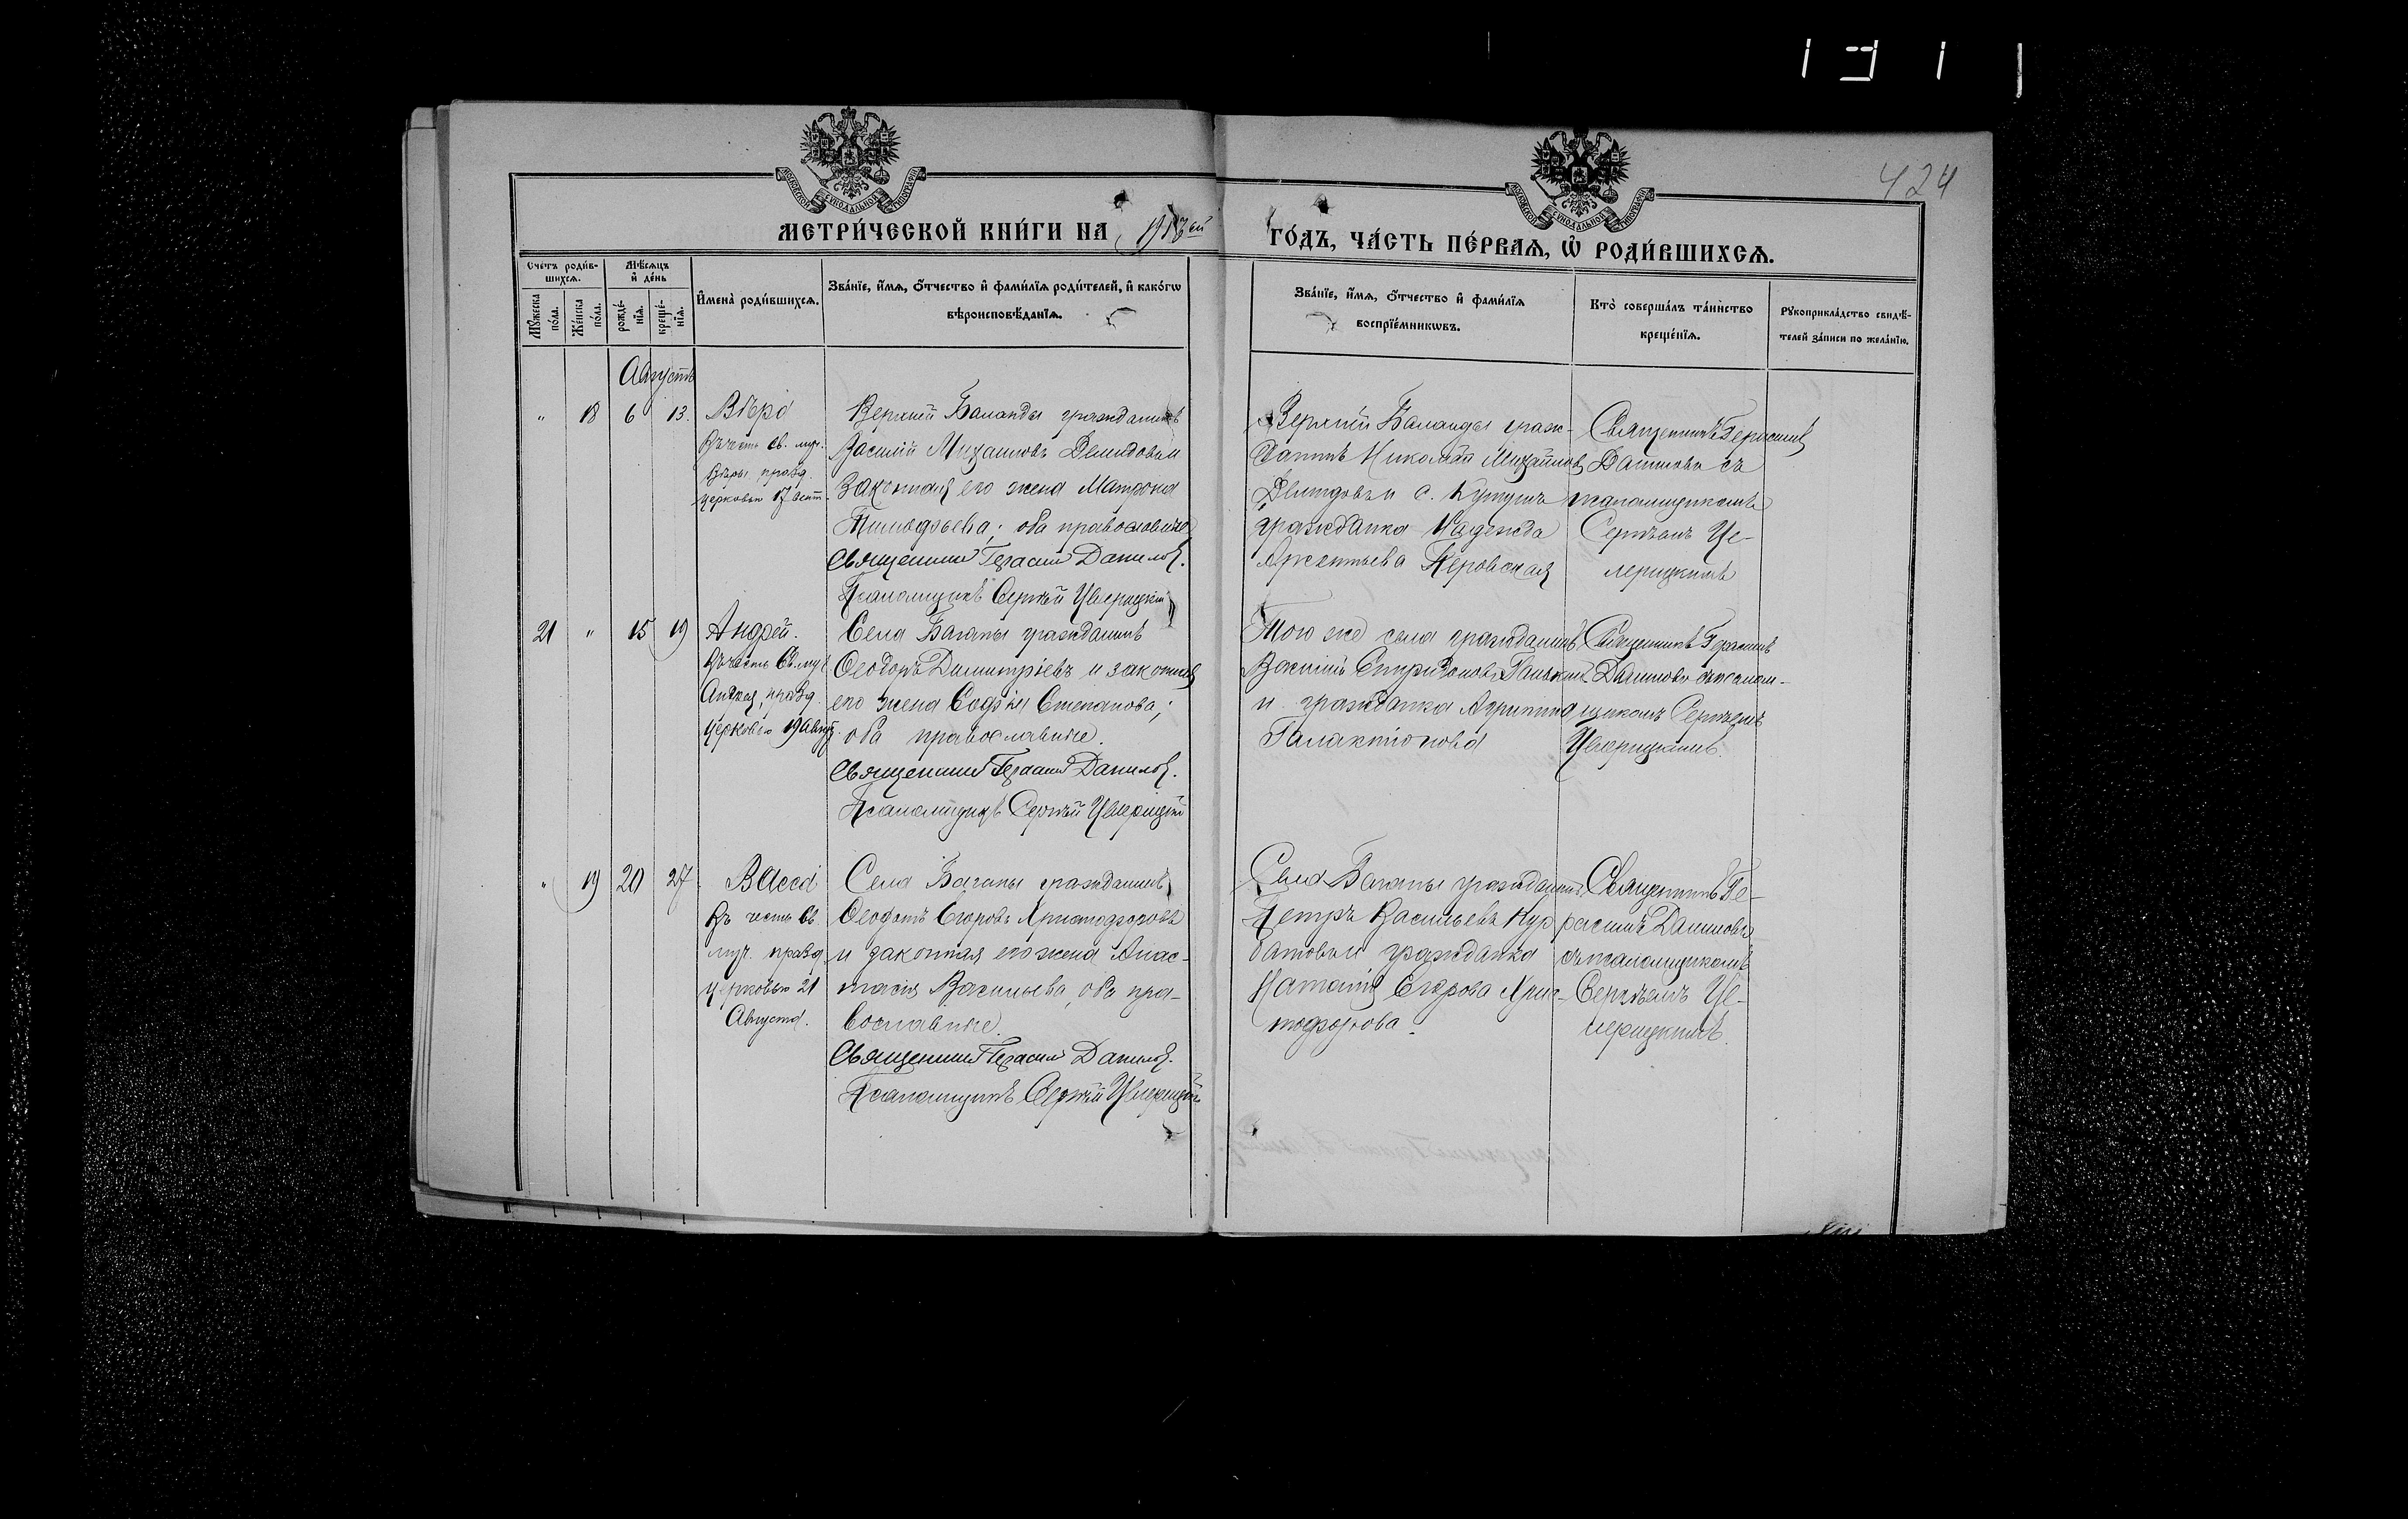 424
МЕТРИ́ЧЕСКОЙ КНИ́ГИ НА 191
ГО́ДЪ, ЧА́СТЬ ПЕ́РВАЯ, Ѿ РОДИ́ВШИХСЯ.
Счетъ роди́в-
шихся.
Мѣ́сяцъ
и де́нь
Му́жеска
по́ла.
Же́нска
по́ла.
рожде́-
нїя.
креще́-
нїя.
И҆мена̀ роди́вшихся.
Зва́нїе, и҆́мя, ѻ҆́тчество и҆ фами́лїя роди́телей, и҆ како́гѡ
вѣроисповѣ́данїя.
Зва́нїе, и҆́мя, ѻ҆́тчество и҆ фами́лїя
воспрїе́мникѡвъ.
Кто̀ соверша́лъ та́инство
креще́нїя.
Рукоприкла́дство свидѣ́-
телей за́писи по жела́нїю.
Августъ
" 18 6 13.
Вѣра
Въ честь св. муч.
Вѣры, празд.
церковью 17 сент.
Верхней Баланды гражданинъ
Василій Михаиловъ Демидовъ и
законная его жена Матрона
Тимофѣева; оба православные
Священникъ Герасимъ Даниловъ.
Псаломщикъ Сергѣй Целерицкій
Верхней Баланды граж-
данинъ Николай Михайловъ
Демидовъ и с.
гражданка Надежда
Керовская
Священникъ Герасимъ
Даниловъ съ
псаломщикомъ
Сергѣемъ Це-
лерицкимъ
21 " 15 19
Андрей.
Въ честь Св. муч.
Андрея, празд.
церковью 19 Август.
Села Баганы гражданинъ
Ѳеодоръ Димитріевъ и законная
его жена Софія Степанова;
оба православные.
Священникъ Герасимъ Даниловъ.
Псаломщикъ Сергѣй Целерицкій
Того же села гражданинъ
Василій Спиридоновъ
и гражданка Агрипина
Галактіонова
Священникъ Герасимъ
Даниловъ съ псалом-
щикомъ Сергѣемъ
Целерицкимъ.
" 19 20 27
Васса
Въ честь св.
муч. празд.
церковью 21
Августа.
Села Баганы гражданинъ
Егоровъ Христофоровъ
и законная его жена Анас-
тасія Васильева, оба пра-
вославные.
Священникъ Герасимъ Даниловъ.
Псаломщикъ Сергѣй Целерицкій
Села Баганы гражданинъ
Петръ Васильевъ Нур-
батовъ и гражданка
Наталія Егорова Хрис-
тофорова.
Священникъ Ге-
расимъ Даниловъ
съ псаломщикомъ
Сергѣемъ Це-
лерицкимъ.